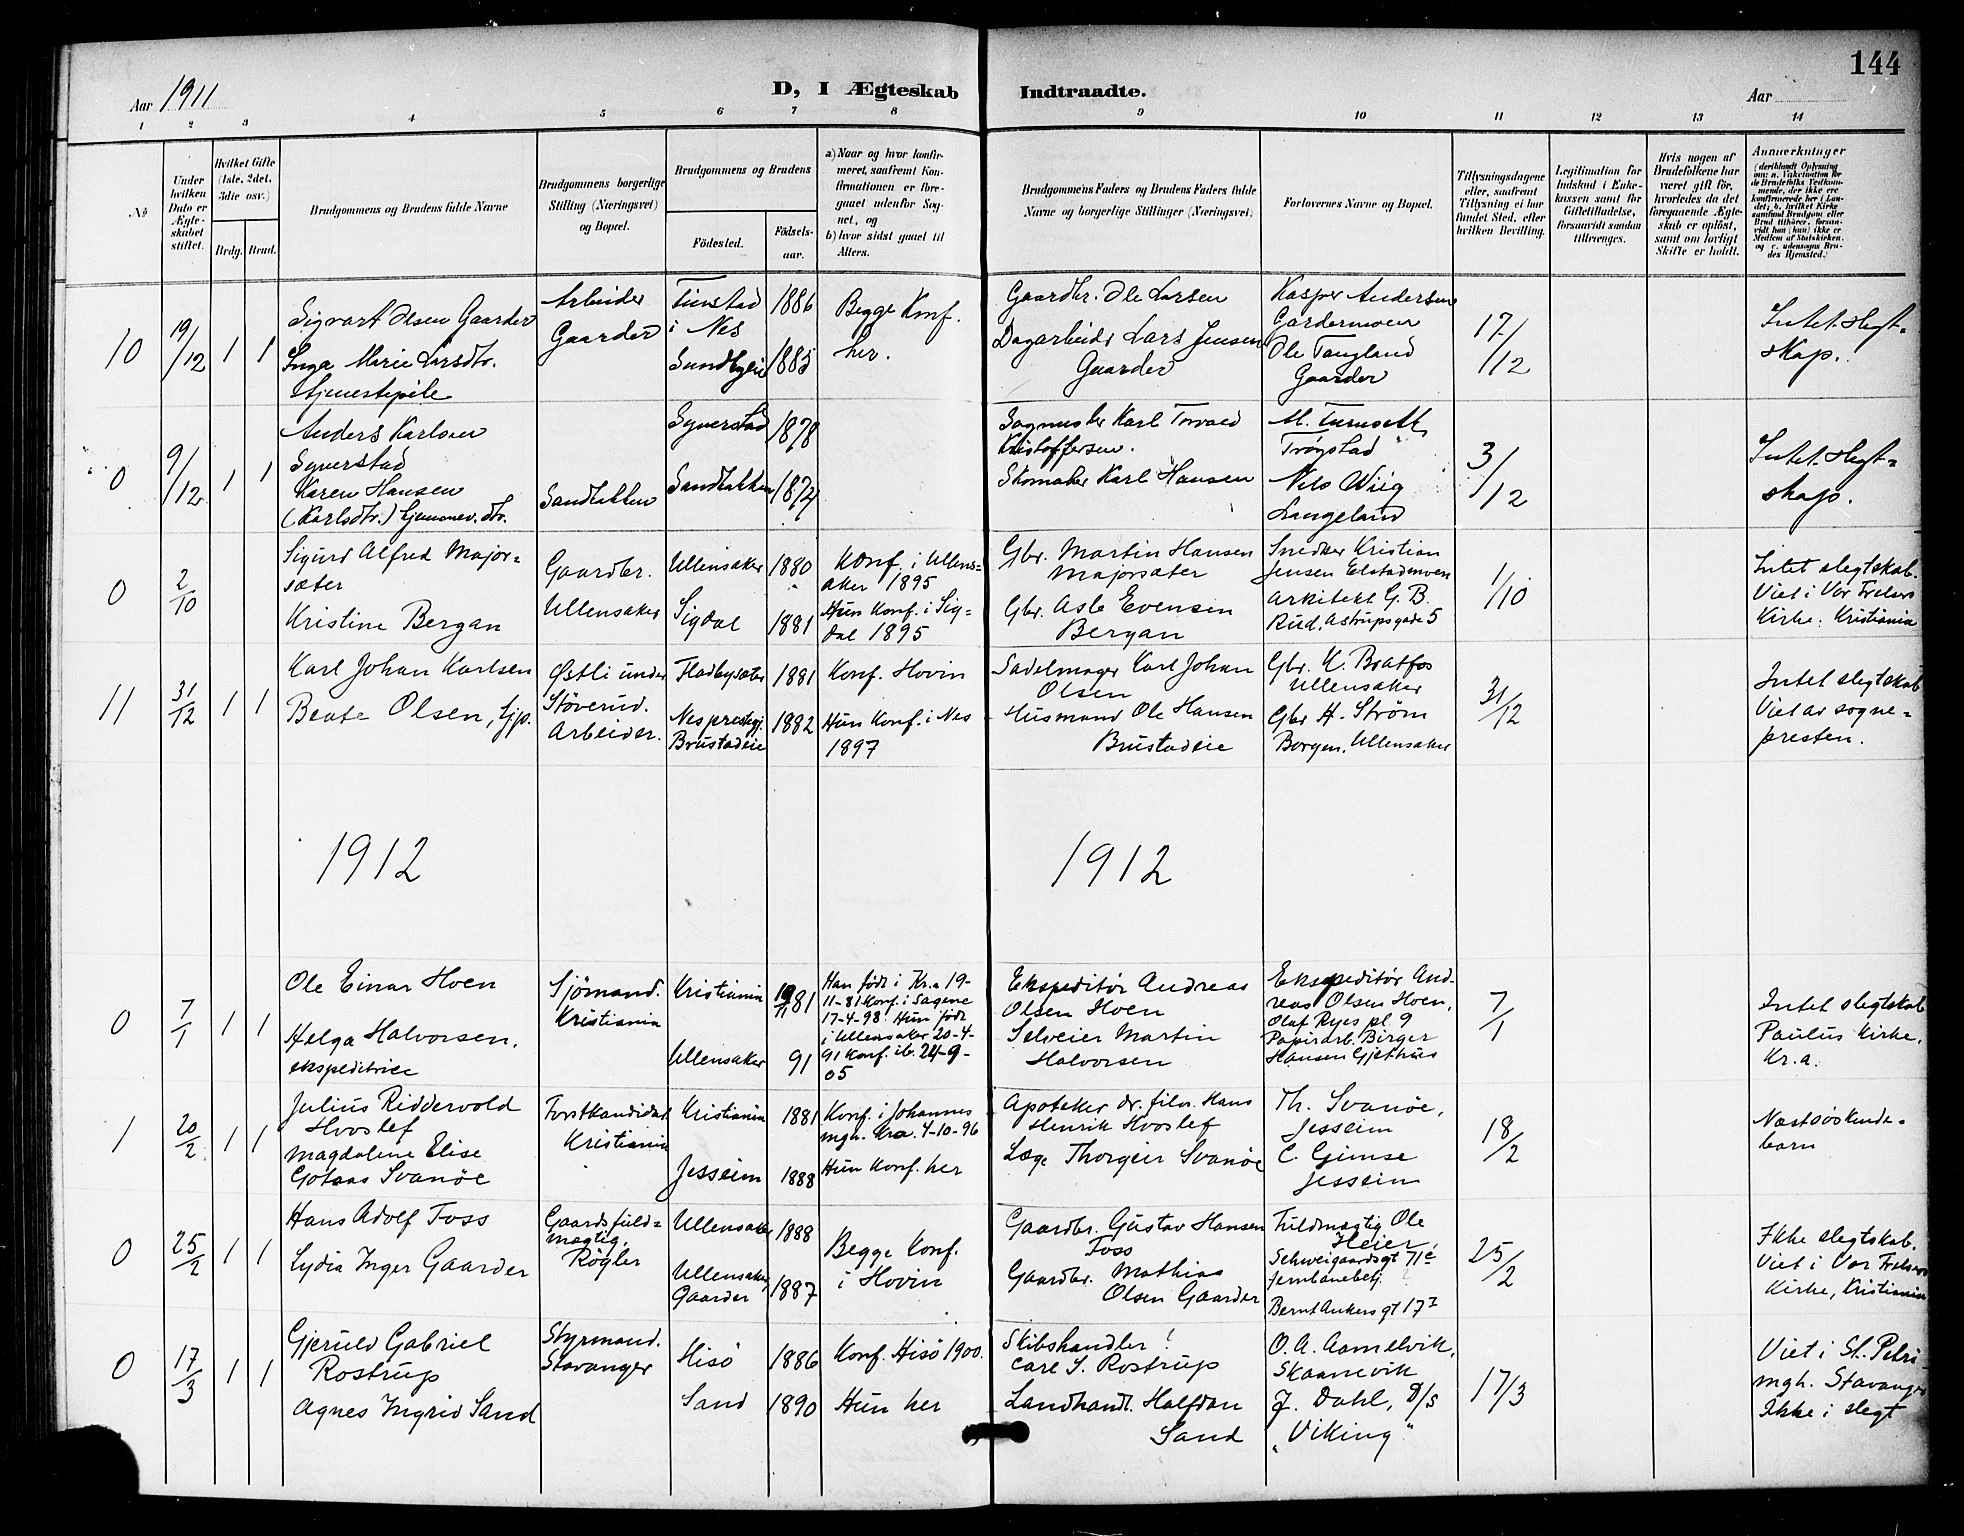 144
Aar 1911
D, I Ægteskab Indtraadte.
Aar
1 2 3 4 5 6 7 8 9 10 11 12 13 14
No
Under hvilken Dato er Ægteskabet stiftet.
Hvilket Gifte (1ste, 2det, 3die osv.)
Brdg. Brud.
Brudgommens og Brudens fulde Navne
Brudgommens borgerlige Stilling (Næringsvei) og Bopæl.
Brudgommens og Brudens
Fødested.
Fødselsaar.
a) Naar og hvor konfirmeret, saafremt Konfirmationen er foregaaet udenfor Sognet, og
b) hvor sidst gaaet til Alters.
Brudgommens Faders og Brudens Faders fulde Navne og borgerlige Stillinger (Næringsvei)
Forlovernes Navne og Bopæl.
Tillysningsdagene eller, saafremt Tillysning ei har fundet Sted, efter hvilken Bevilling.
Legitimation for Indskud i Enkekassen samt for Giftetilladelse, forsaavidt saadan tiltrænges.
Hvis nogen af Brudefolkene har været gift før, hvorledes da det foregaaende Ægteskab er opløst, samt om lovligt Skifte er holdt.
Anmærkninger
(deriblandt Oplysning om: a. Vakcination for de Brudefolks Vedkommende, der ikke ere konfirmerede her i Landet; b. hvilket Kirkesamfund Brudgom eller Brud tilhører, forsaavidt han (hun) ikke er Medlem af Statskirken, og c. udensogns Brudes Hjemsted.)
10 19/12 1 1
Sigvart Olsen Gaarder
Inga Marie Larsdtr.
Hjemstepile
Arbeider
Gaarder
Finstad
i Nes
1886
Sundbyeie 1885
Begge Konf.
her.
Gaardbr. Ole Larsen
Dagarbeider Lars Jensen
Gaarder
Kasper Andersen
Gardermoen
Ole Tangland
Gaarder
17/12
Intet Slegt-
skap.
0 9/12 1 1
Anders Karlsen
Synerstad
Karen Hansen
(Karlsdtr.) hjemmev. dtr.
Sandtakken
Synerstad 1878
Sandtakken 1874
Sagmester Karl Torvald
Kristoffersen.
Skomaker Karl Hansen
M. Turnsett
Trøgstad
Nils Wiig
Langeland
3/12
Intet Slegt-
skap.
0 2/10
Sigurd Alfred Major-
sæter
Kristine Bergan
Gaardbr.
Ullensaker
Ullensaker 1880
Sigdal 1881
Konf. i Ullens-
aker 1895
Hun Konf. i Sig-
dal 1895
Gbr. Martin Hansen
Majorsæter
Gbr. Asle Evensen
Bergan
Snedker Kristian
Jensen Elstadmoen
Arkitekt G. B.
Rud, Astrupsgade 5
1/10
Intet slegtskab.
Viet i Vår Frelsers
Kirke, Kristiania
11 31/12 1 1
Karl Johan Karlsen
Beate Olsen, tjp.
Østli under
Støverud.
Arbeider.
Fladbysæter 1881
Nes prestegj.
Brustadeie 1882
Konf. Hovin
Hun Konf. i Nes
1897
Sadelmager Karl Johan
Olsen
Husmand Ole Hansen
Brustadeie
Gbr. K. Bratfos
Ullensaker
Gbr H. Strøm
Borgen, Ullensaker
31/12
Intet slegtskab
Viet av sogne-
presten.
1912 1912
0 7/1 1 1
Ole Einar Hoen
Helga Halvorsen,
ekspeditrice
Sjömand.
Kristiania
Kristiania 19/11 81
Ullensaker 91
Han født i Kr.a 19-
11-81 Konf. i Sagene
17-4-98. Hun født
i Ullensaker 20-4-
91 Konf. ib. 24-9-
05
Ekspeditør Andreas
Olsen Hoen
Selveier Martin
Halvorsen
Ekspeditør And-
reas Olsen Hoen,
Olaf Ryes pl. 9
Papirarb. Birger
Hansen Gjethus
7/1
Intet slegtskab
Paulus Kirke,
Kr.a.
1 20/2 1 1
Julius Riddervold
Hvoslef
Magdalene Elise
Gotaas Svanöe
Forstkandidat
Kristiania
Kristiania 1881
Jesseim 1888
Konf. i Johannes
mgh. Kra. 4-10-96
Hun Konf. her
Apoteker dr. filos. Hans
Henrik Hvoslef
Læge Thorgeir Svanöe
Th. Svanöe,
Jesseim
C. Gimse
Jesseim
18/2
Næstsöskende-
barn
0 25/2 1 1
Hans Adolf Foss
Lydia Inger Gaarder
Gaardsfuld-
mægtig,
Røgler
Ullensaker 1888
Ullensaker,
Gaarder 1887
Begge Konf.
i Hovin
Gaardbr. Gustav Hansen
Foss
Gaardbr. Mathias
Olsen Gaarder
Fuldmægtig Ole
Heier,
Schweigaardsgt 71 c
Jernbanebetj.
Bernt Ankers gt 17 I
25/2
Ikke slegtskab.
Viet i Vor Frelsers
Kirke, Kristiania
0 17/3 1 1
Gjeruld Gabriel
Rostrup
Agnes Ingrid Sand
Styrmand.
Stavanger
Hisö 1886
Sand 1890
Konf. Hisö 1900.
Hun her
Skibshandler
Carl S. Rostrup
Landhandl. Halfdan
Sand
O. A. Aamelvik,
Skaanevik
J. Dahl, D/s
„Viking"
17/3
Viet i St. Petri
mgh. Stavanger
Ikke i slegt